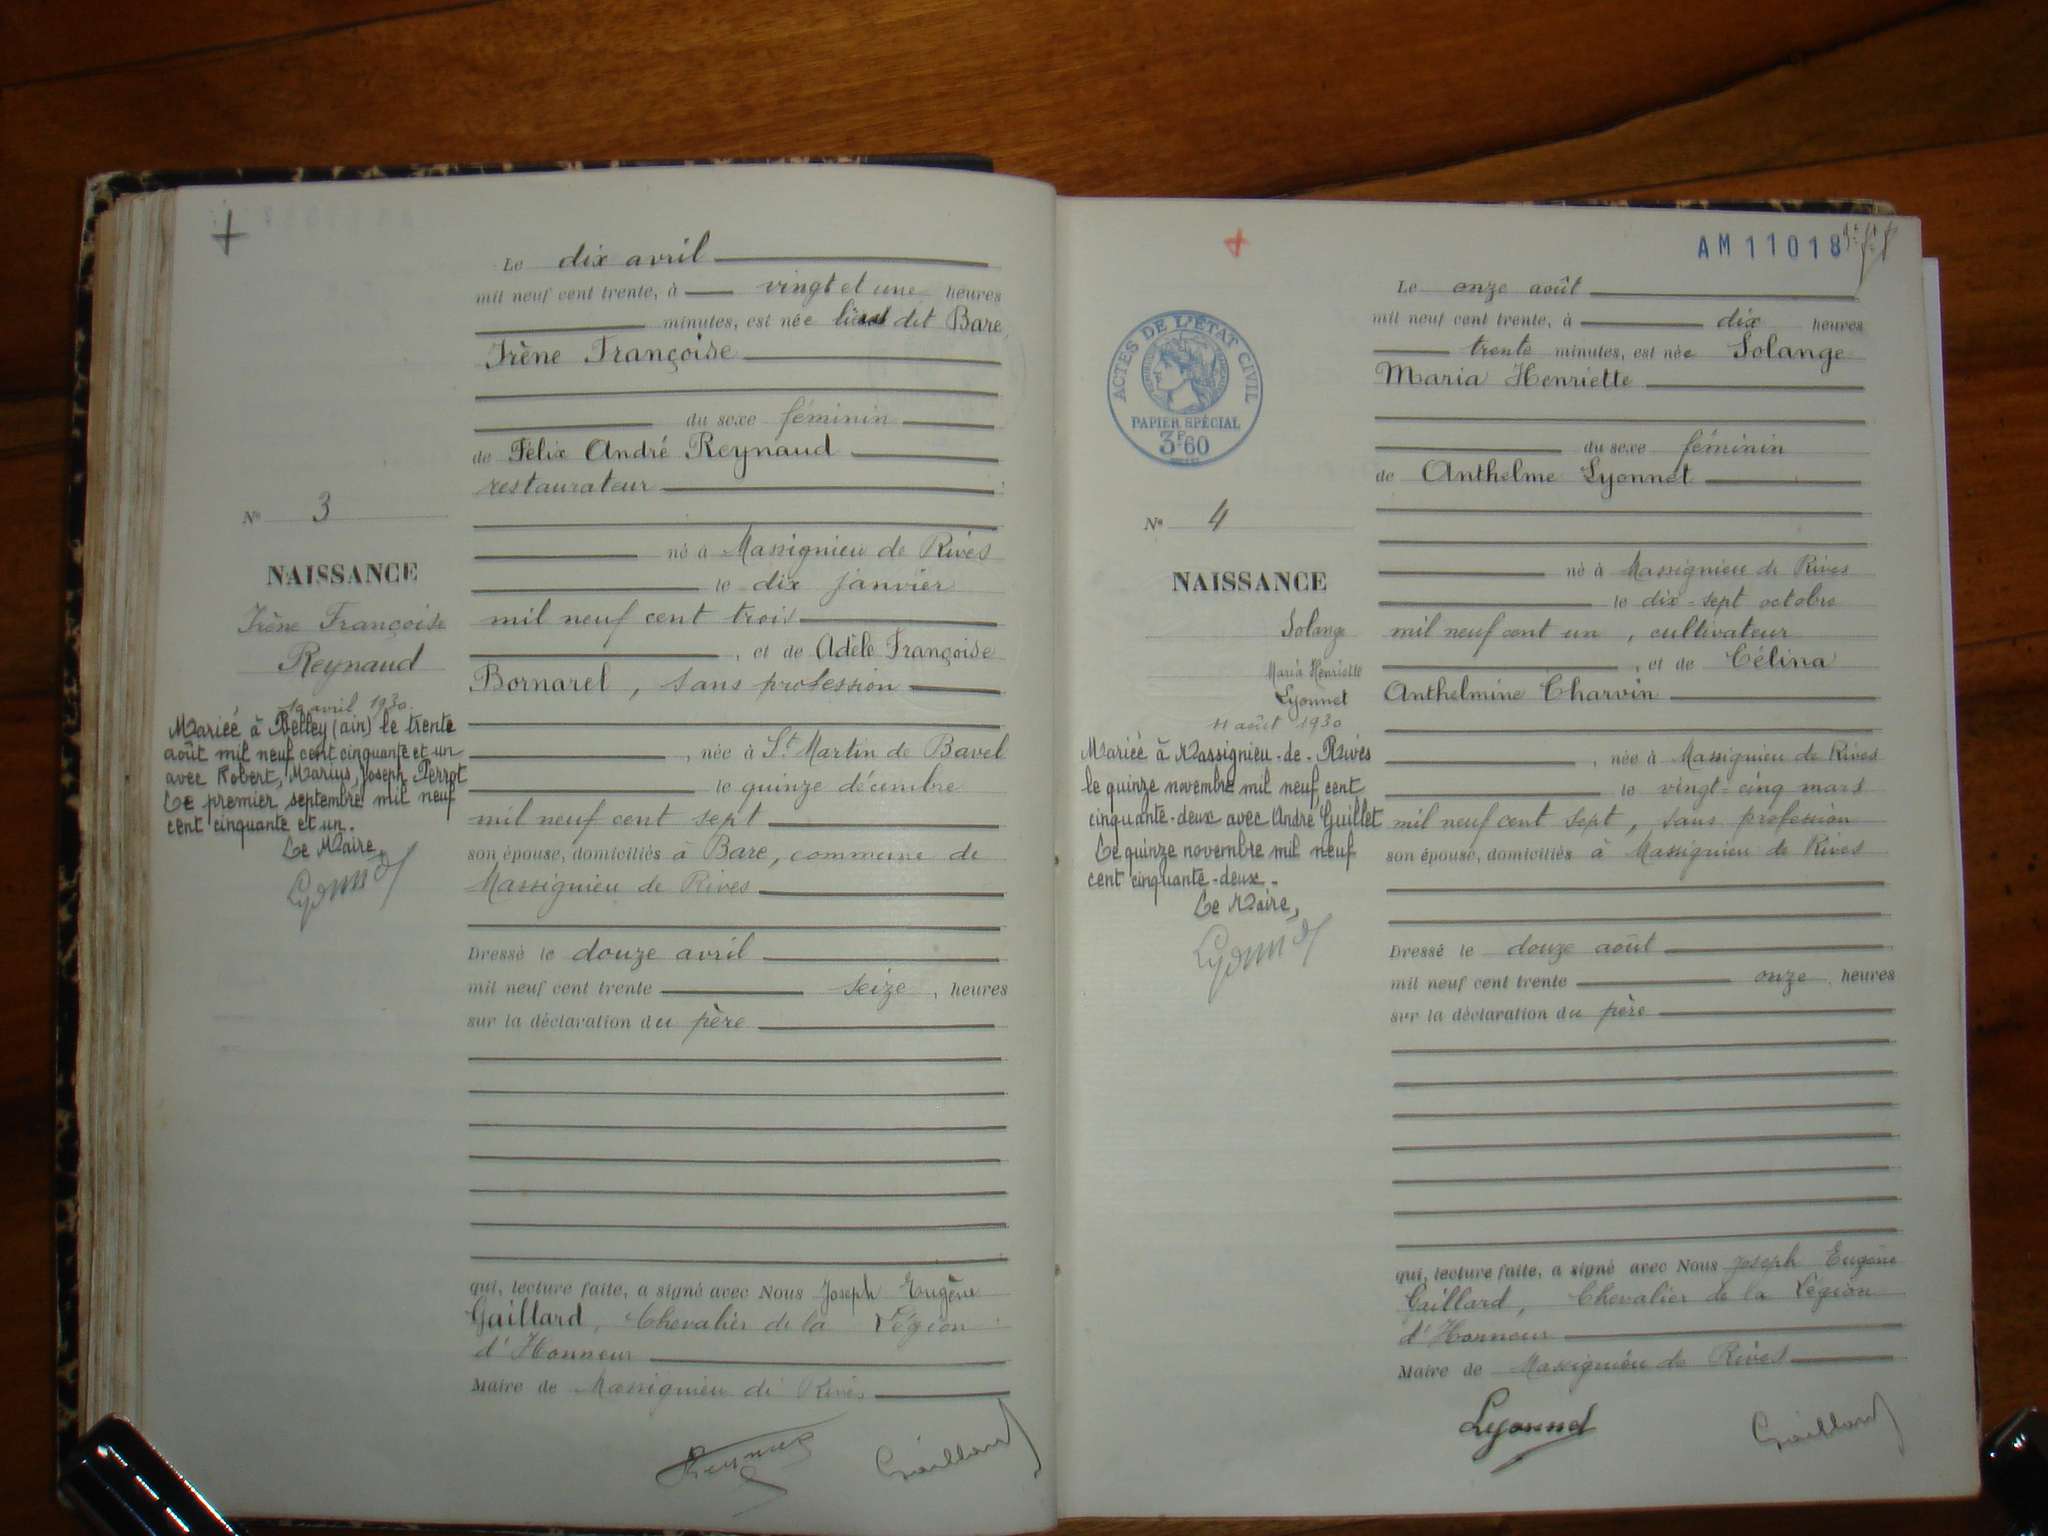 Le dix avril
mil neuf cent trente, à vingt et une heures
minutes, est née lieu dit Bare
Irène Françoise
du sexe féminin
de Félix André Reynaud
restaurateur
né à Massignieu de Rives
le dix janvier
mil neuf cent trois
, et de Adèle Françoise
Bornarel, sans profession
, née à St Martin de Bavel
le quinze décembre
mil neuf cent sept
son épouse, domiciliés à Bare, commune de
Massignieu de Rives
Dressé le douze avril
mil neuf cent trente seize, heures
sur la déclaration du père
qui, lecture faite, a signé avec Nous Joseph Eugène
Gaillard, Chevalier de la Légion
d'Honneur
Maire de Massignieu de Rives
Gaillard
No 3
NAISSANCE
Irène Françoise
Reynaud
avril 1930
Mariée à Belley (ain) le trente
août mil neuf cent cinquante et un
avec Robert, Marius, Joseph Perrot
Le premier septembre mil neuf
cent cinquante et un.
Le Maire,
AM 11018
ACTES DE L'ÉTAT CIVIL
PAPIER SPÉCIAL
3F60
No 4
NAISSANCE
Solange
Maria Henriette
Lyonnet
11 août 1930
Mariée à Massignieu-de-Rives
le quinze novembre mil neuf cent
cinquante-deux avec André Guillet
Le quinze novembre mil neuf
cent cinquante-deux.
Le Maire,
Le onze août
mil neuf cent trente, à dix heures
trente minutes, est née Solange
Maria Henriette
du sexe féminin
de Anthelme Lyonnet
né à Massignieu de Rives
le dix-sept octobre
mil neuf cent un, cultivateur
, et de Célina
Anthelmine Charvin
, née à Massignieu de Rives
le vingt-cinq mars
mil neuf cent sept, sans profession
son épouse, domiciliés à Massignieu de Rives
Dressé le douze août
mil neuf cent trente onze, heures
sur la déclaration du père
qui, lecture faite, a signé avec Nous Joseph Eugène
Gaillard, Chevalier de la Légion
d'Honneur
Maire de Massignieu de Rives
Lyonnet
Gaillard